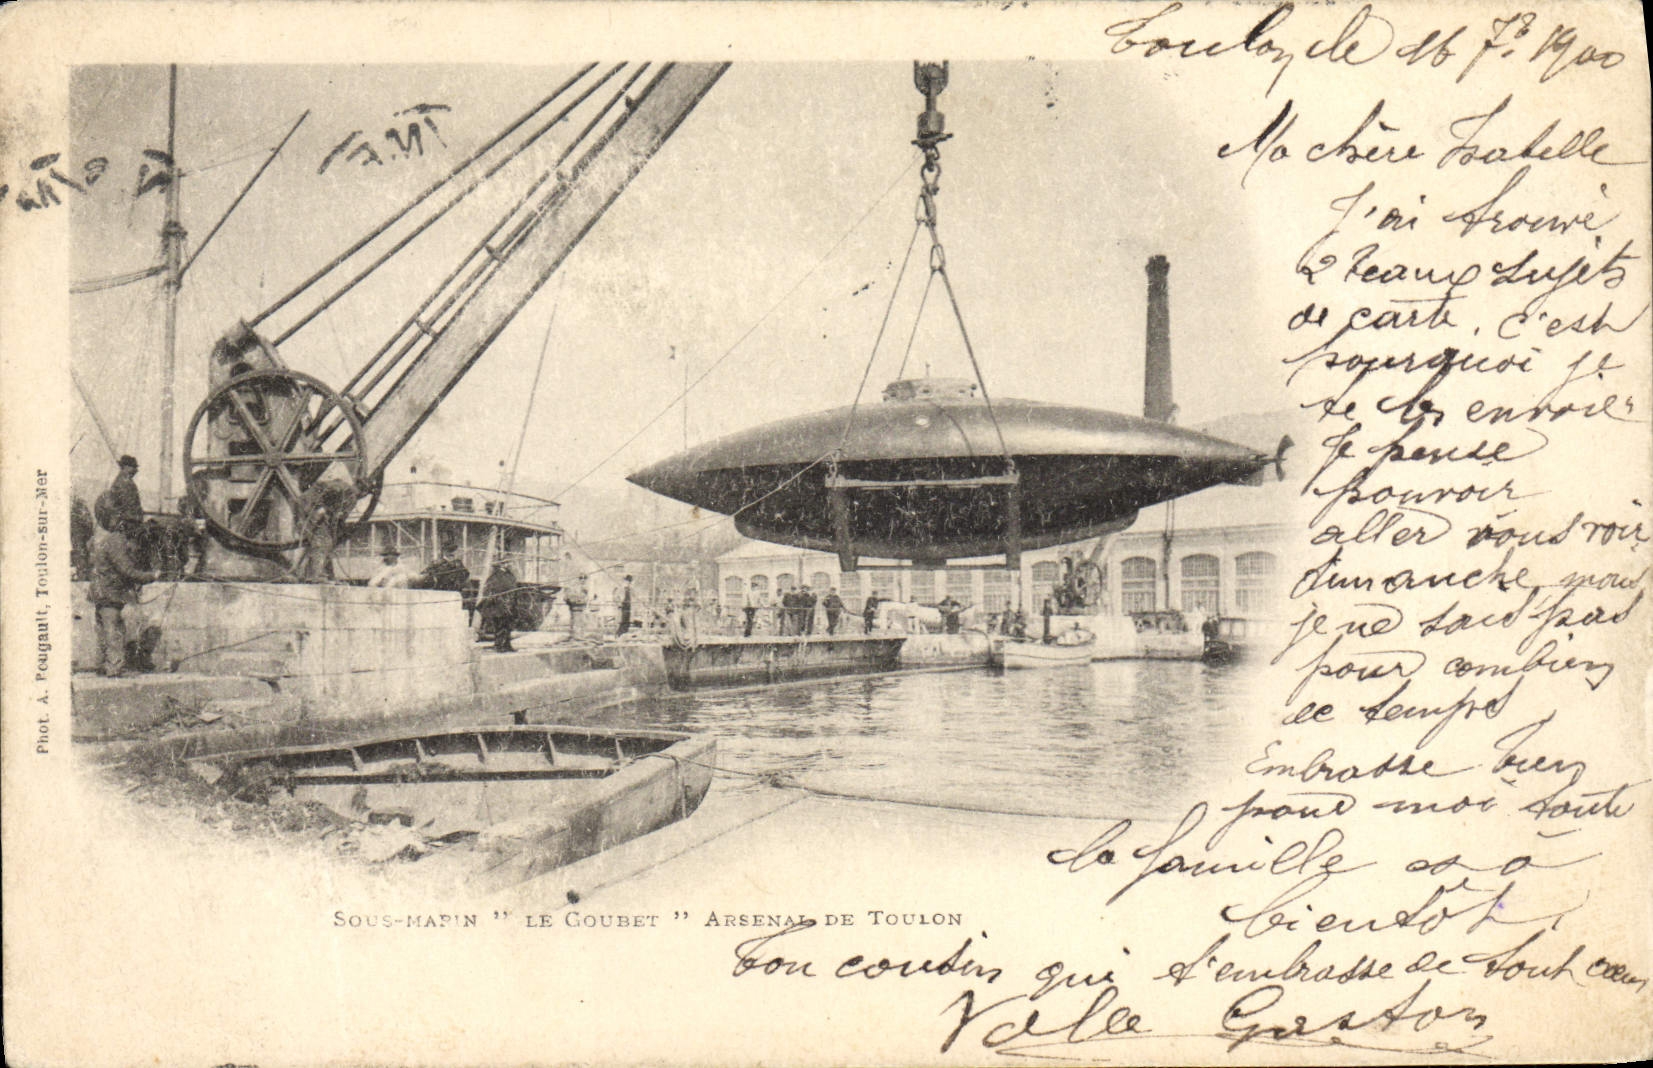 Toulon le 16 7bre 1900
Ma chère Isabelle
J'ai trouvé
2 beaux sujets
de carte, c'est
pourquoi je
te les envoie
Je pense
pouvoir
aller vous voir
dimanche, mais
je ne sais pas
pour combien
de temps
Embrasse bien
pour moi toute
la famille et à
bientôt,
Ton cousin qui t'embrasse de tout cœur
Gaston
SOUS-MARIN " LE GOUBET " ARSENAL DE TOULON
Phot. A. Pougault, Toulon-sur-Mer